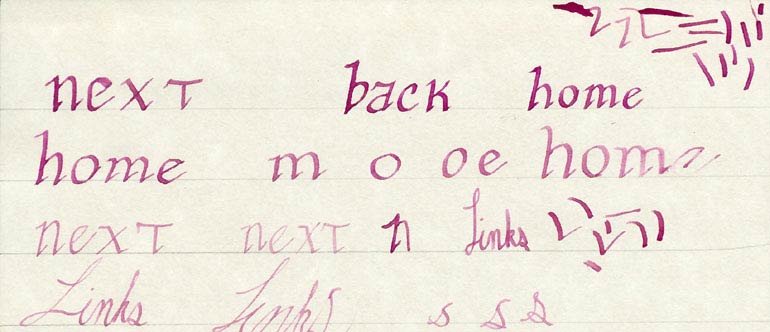 next back home
home m o o e home
next next n Links
Links Links s s s